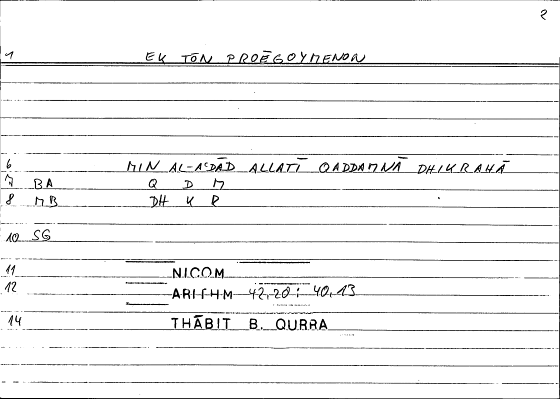 2
1 EK TŌN PROĒGOYMENŌN
6 MIN AL-AʿDĀD ALLATĪ QADDAMNĀ DHIKRAHĀ
7 BA Q D M
8 MB DH K R
10 SG
11 NICOM
12 ARITHM 42,20; 40,13
14 THĀBIT B. QURRA